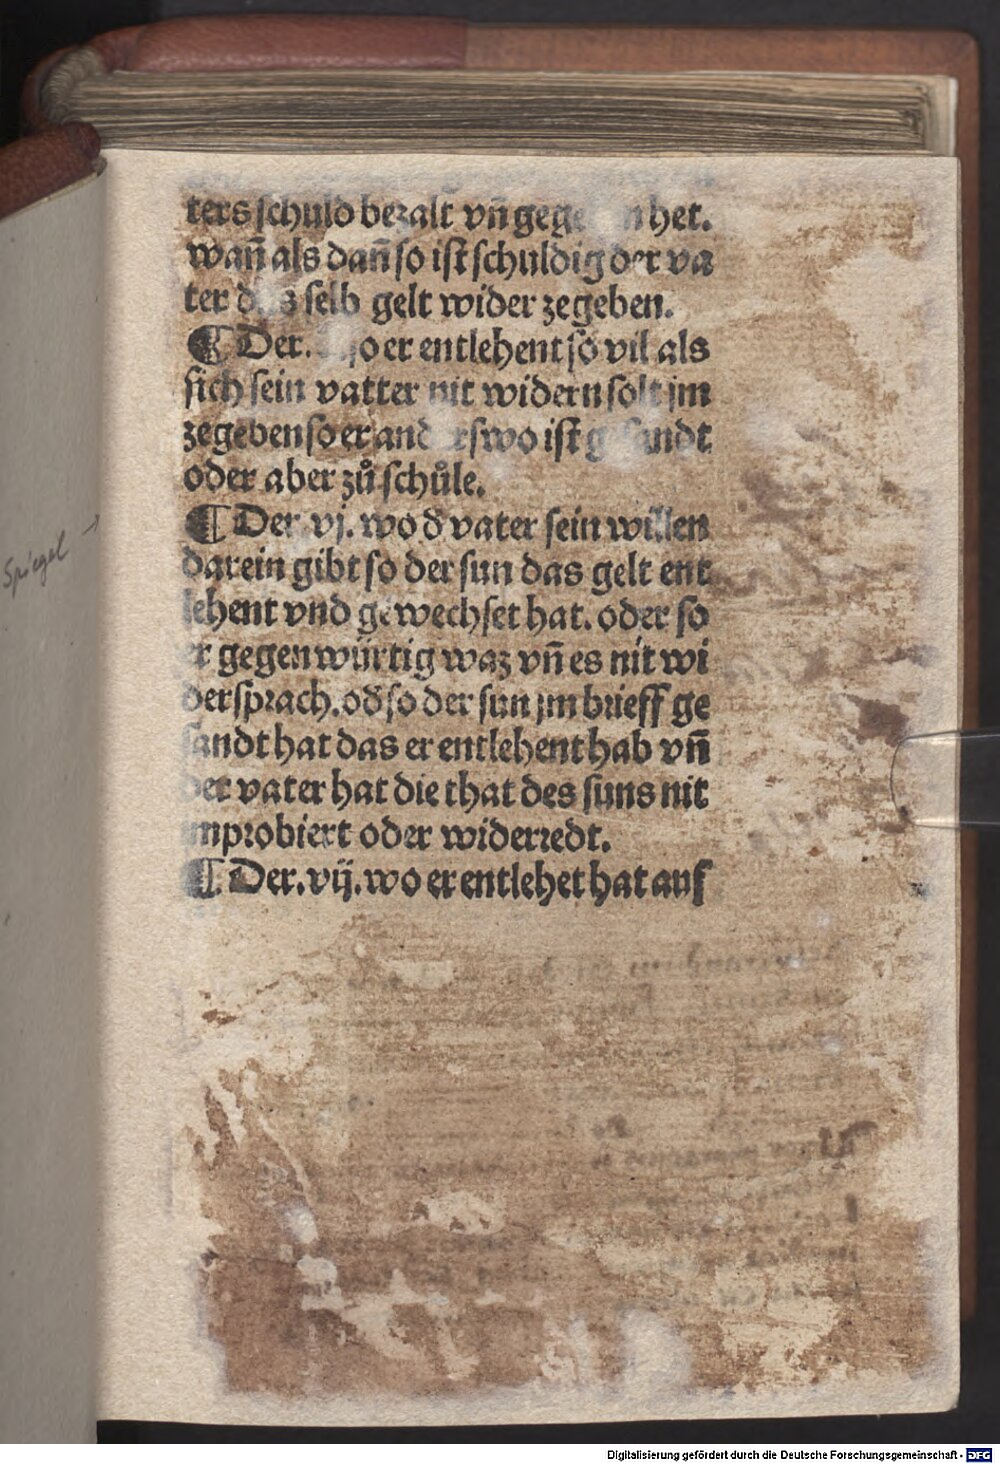 ters schuld bezalt vn̄ gege n het.
wan̄ als dan̄ so ist schuldig der va
ter selb gelt wider zegeben.
¶ Der. so er entlehent so vil als
sich sein vatter nit widern solt jm
zegeben so er ist
oder aber zů schůle.
¶ Der .vj. wo d̄ vater sein willen
darein gibt so der sun das gelt ent
lehent vnd gewechset hat. oder so
er gegenwürtig waz vn̄ es nit wi
dersprach. od̄ so der sun jm brieff ge
sandt hat das er entlehent hab vn̄
der vater hat die that des suns nit
improbiert oder widerredt.
¶ Der .vij. wo er entlehet hat auf
Spiegel →
Digitalisierung gefördert durch die Deutsche Forschungsgemeinschaft - DFG